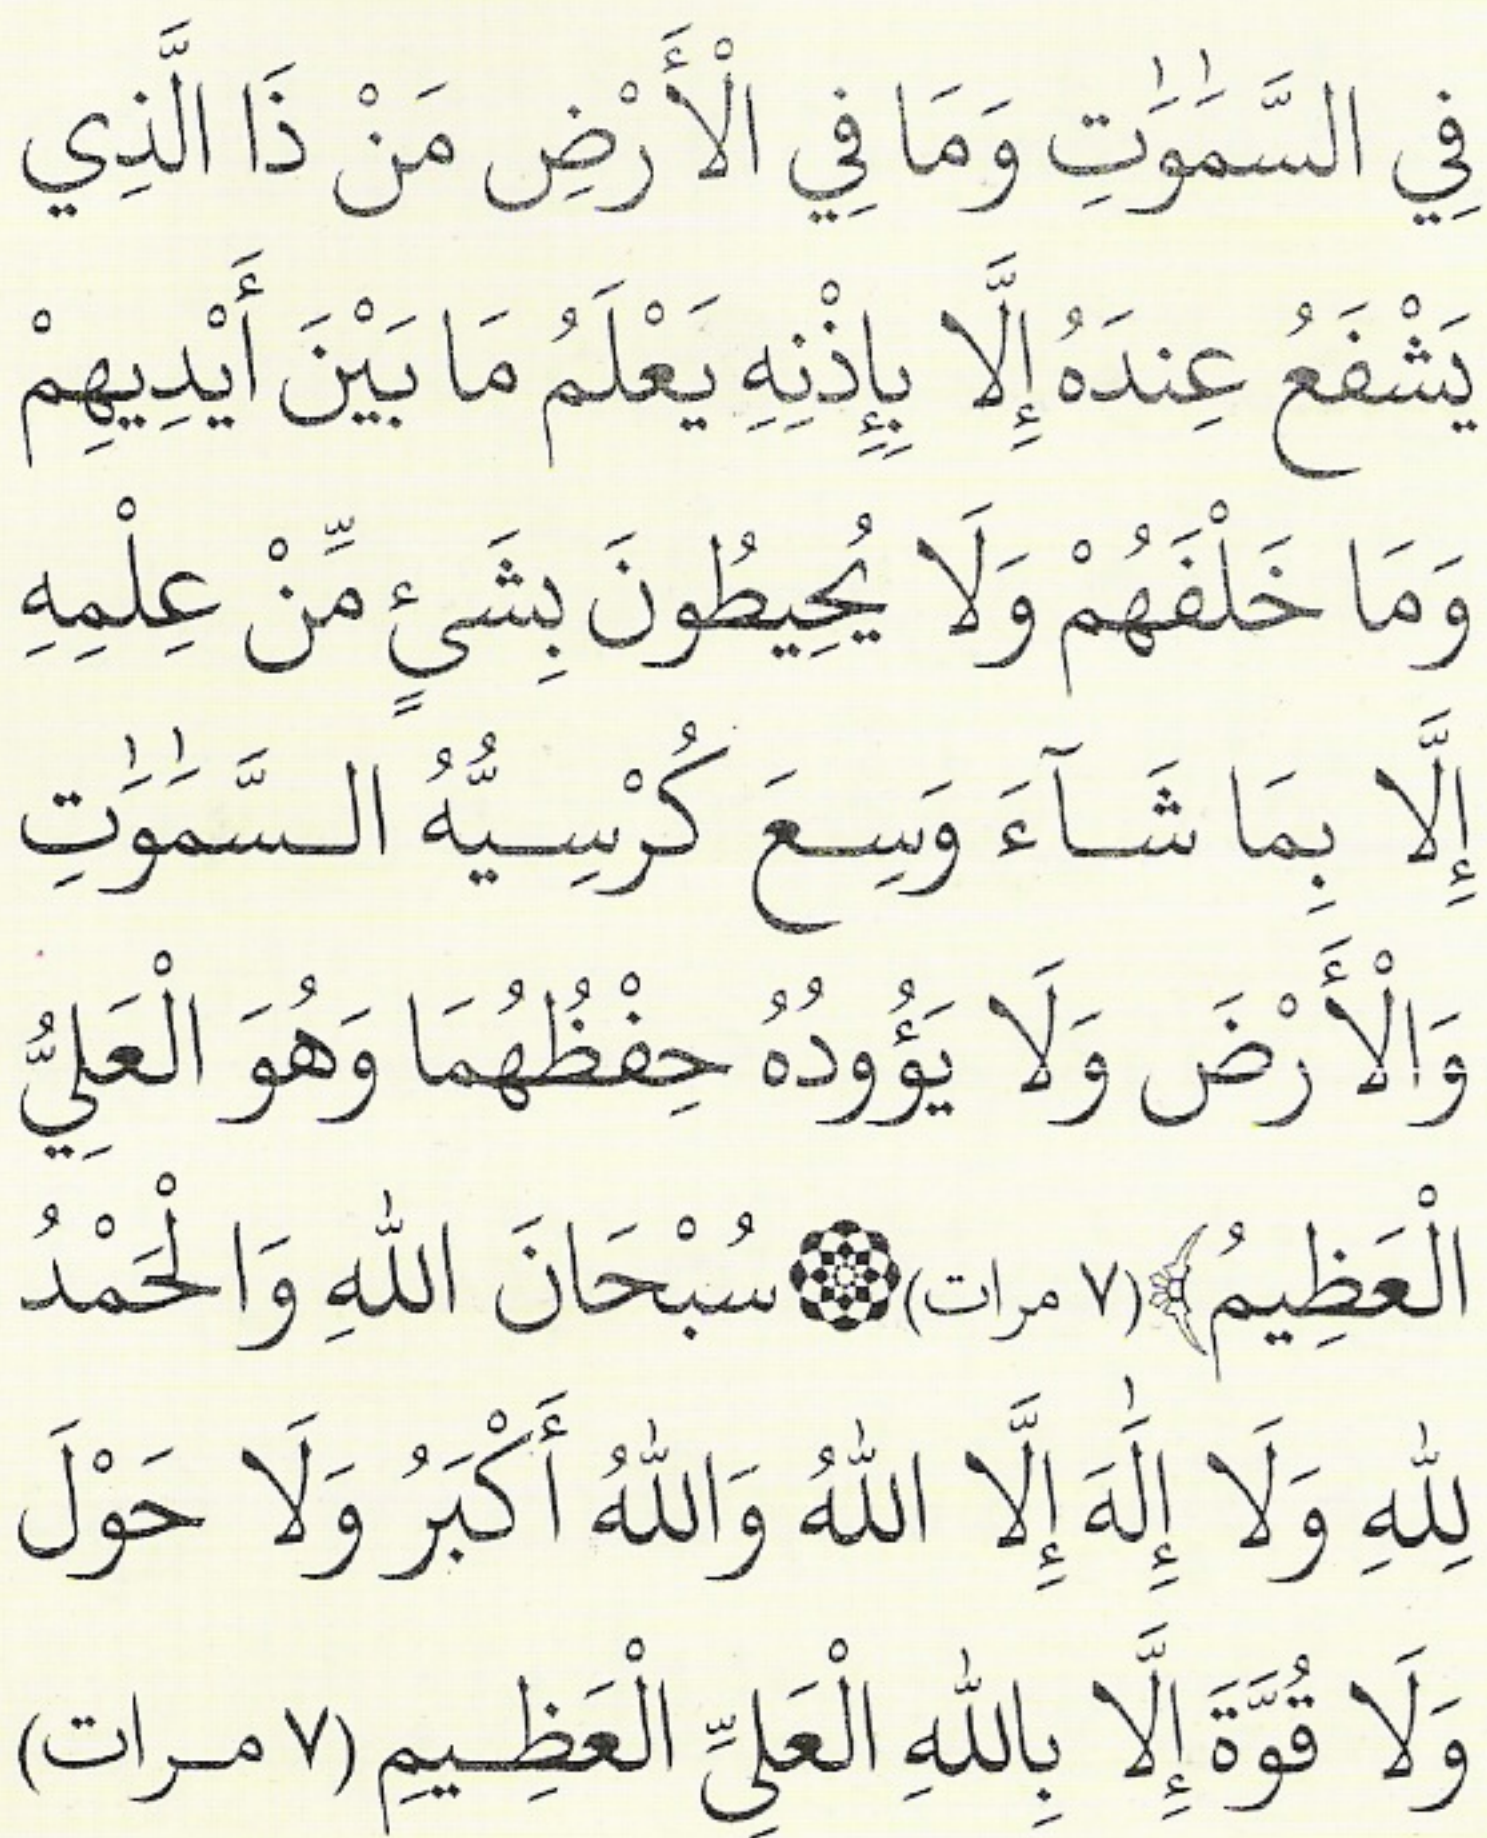 فِي السَّمَٰوَٰتِ وَمَا فِي الْأَرْضِ مَنْ ذَا الَّذِي
يَشْفَعُ عِندَهُ إِلَّا بِإِذْنِهِ يَعْلَمُ مَا بَيْنَ أَيْدِيهِمْ
وَمَا خَلْفَهُمْ وَلَا يُحِيطُونَ بِشَيءٍ مِّنْ عِلْمِهِ
إِلَّا بِمَا شَآءَ وَسِعَ كُرْسِيُّهُ السَّمَٰوَٰتِ
وَالْأَرْضَ وَلَا يَؤُودُهُ حِفْظُهُمَا وَهُوَ الْعَلِيُّ
الْعَظِيمُ﴾(٧ مرات) سُبْحَانَ اللّٰهِ وَالْحَمْدُ
لِلّٰهِ وَلَا إِلَٰهَ إِلَّا اللّٰهُ وَاللّٰهُ أَكْبَرُ وَلَا حَوْلَ
وَلَا قُوَّةَ إِلَّا بِاللّٰهِ الْعَلِيِّ الْعَظِيمِ (٧ مرات)